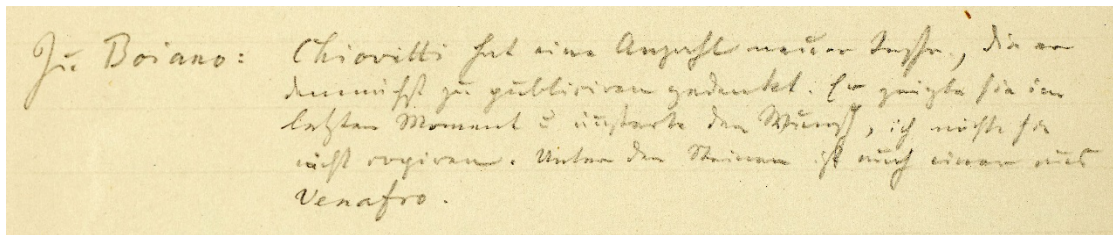 Zu Boiano: Chiovitti hat eine Anzahl neuer Inschr., die er
demnächst zu publiciren gedenkt. Er zeigte sie im
letzten Moment & äusserte den Wunsch, ich möchte sie
nicht copiren. Unter den Steinen ist auch einer aus
Venafro.